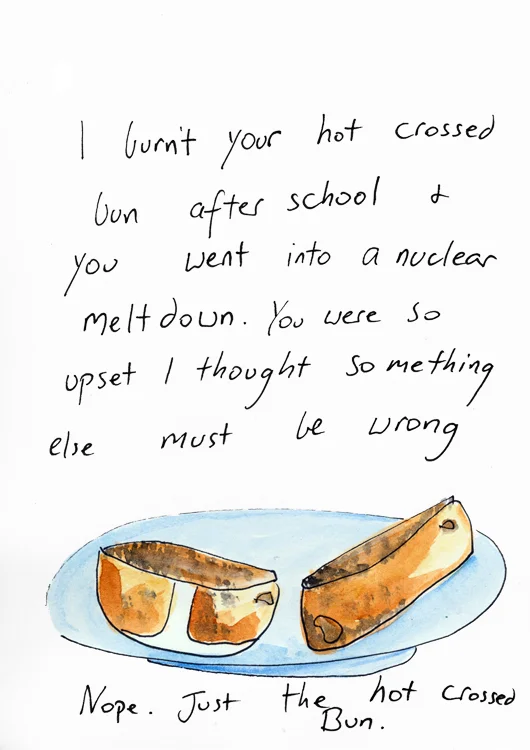 I burn't your hot crossed
bun after school &
you went into a nuclear
meltdown. You were so
upset I thought something
else must be wrong
Nope. Just the hot crossed
Bun.